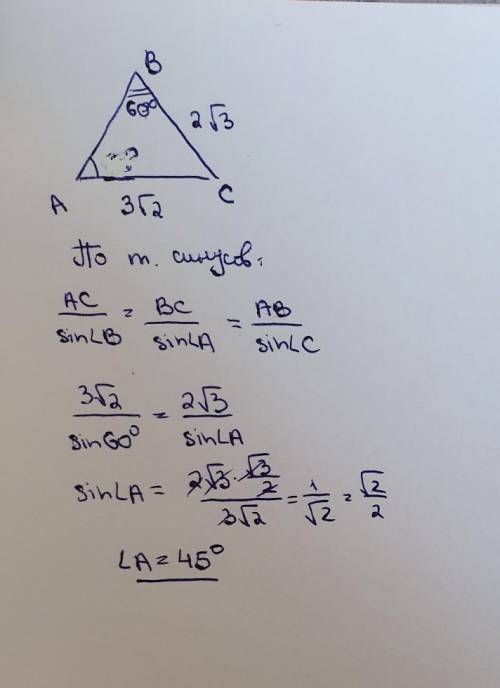 B
60° 2√3
A 3√2 C
По т. синусов:
AC/sin∠B = BC/sin∠A = AB/sin∠C
3√2/sin60° = 2√3/sin∠A
sin∠A = (2√3·√3/2)/3√2 = 1/√2 = √2/2
∠A = 45°